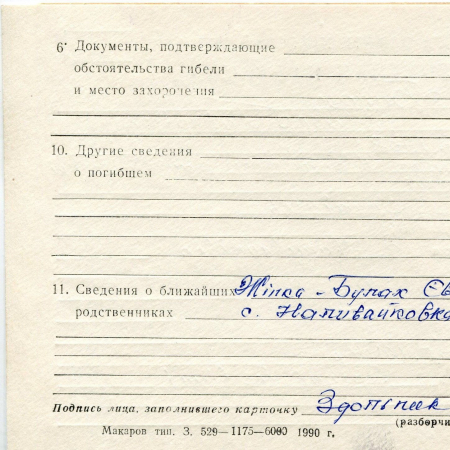 6· Документы, подтверждающие
обстоятельства гибели
и место захоронения
10. Другие сведения
о погибшем
11. Сведения о ближайших Жінка - Бупах Єв
родственниках с. Наливайковка
Подпись лица, заполнившего карточку
(разборчи
Макаров тип. З. 529—1175—6000 1990 г.